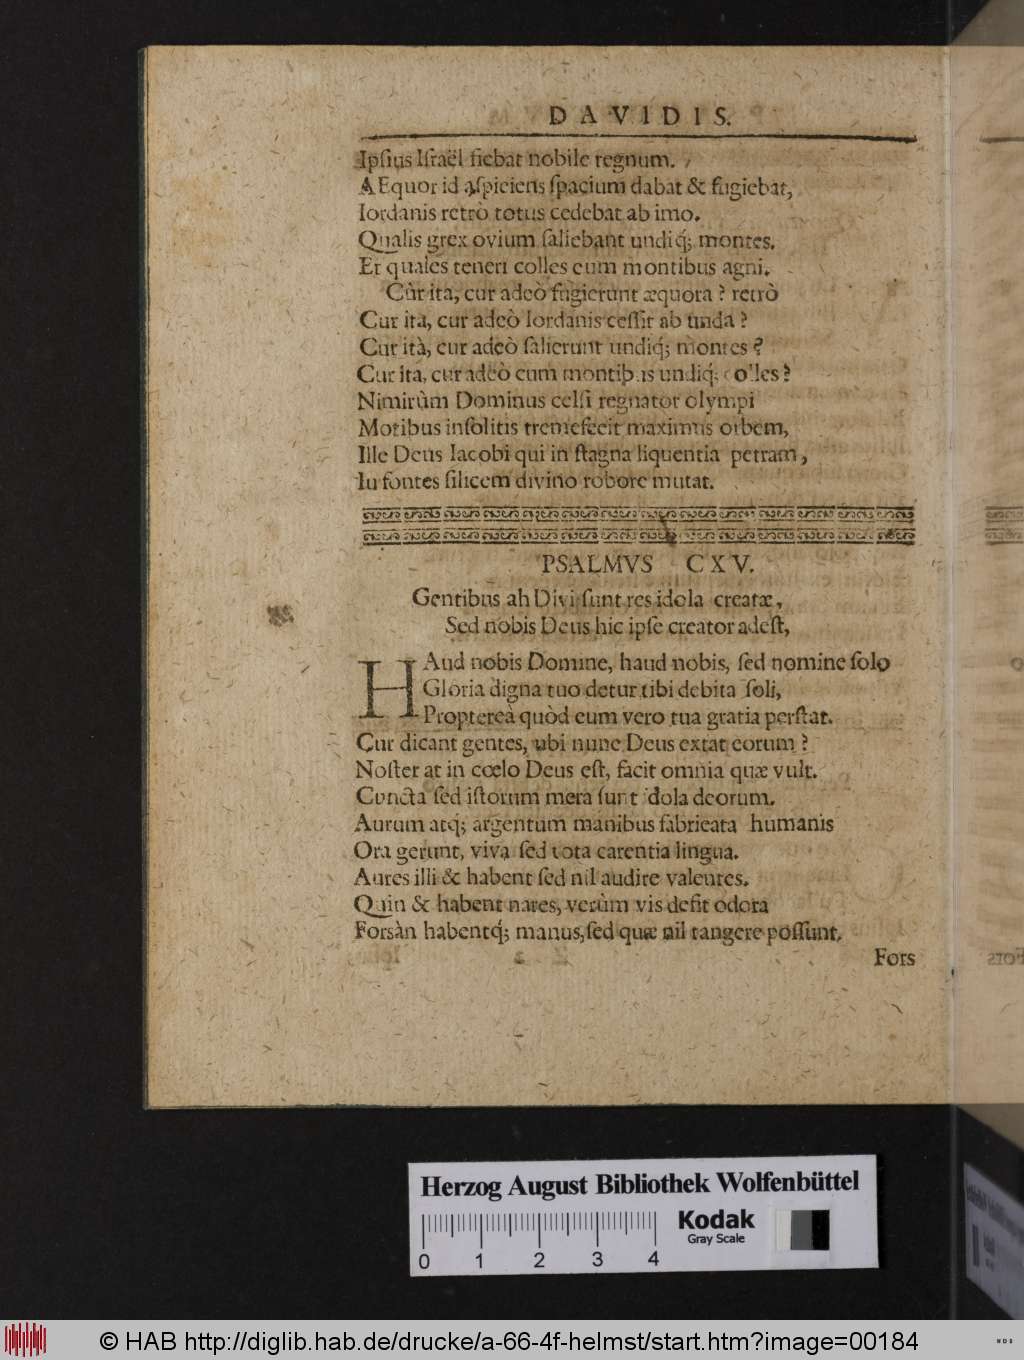 DAVIDIS.
Ipsius Israël fiebat nobile regnum.
AEquor id aspiciens spacium dabat & fugiebat,
Iordanis retrò totus cedebat ab imo.
Qualis grex ovium saliebant undiq́; montes.
Et quales teneri colles cum montibus agni.
Cùr ita, cur adeò fugierunt æquora? retrò
Cur ita, cur adeò Iordanis cessit ab unda?
Cur ità, cur adeò salierunt undiq́; montes?
Cur ita, cur adeò cum montibus undiq́; colles?
Nimirùm Dominus celsi regnator olympi
Motibus insolitis tremefecit maximus orbem,
Ille Deus Iacobi qui in stagna liquentia petram,
Iu fontes silicem divino robore mutat.
PSALMVS CXV.
Gentibus ah Divi sunt res idola creatæ,
Sed nobis Deus hic ipse creator adest,
HAud nobis Domine, haud nobis, sed nomine solo
Gloria digna tuo detur tibi debita soli,
Proptereà quòd cum vero tua gratia perstat.
Cur dicant gentes, ubi nunc Deus extat eorum?
Noster at in cœlo Deus est, facit omnia quæ vult.
Cuncta sed istorum mera sunt idola deorum.
Aurum atq́; argentum manibus fabricata humanis
Ora gerunt, viva sed tota carentia lingua.
Aures illi & habent sed nil audire valentes.
Quin & habent nares, verùm vis defit odora
Forsàn habentq́; manus, sed quæ nil tangere possunt.
Fors
Herzog August Bibliothek Wolfenbüttel
Kodak
Gray Scale
0 1 2 3 4
© HAB http://diglib.hab.de/drucke/a-66-4f-helmst/start.htm?image=00184